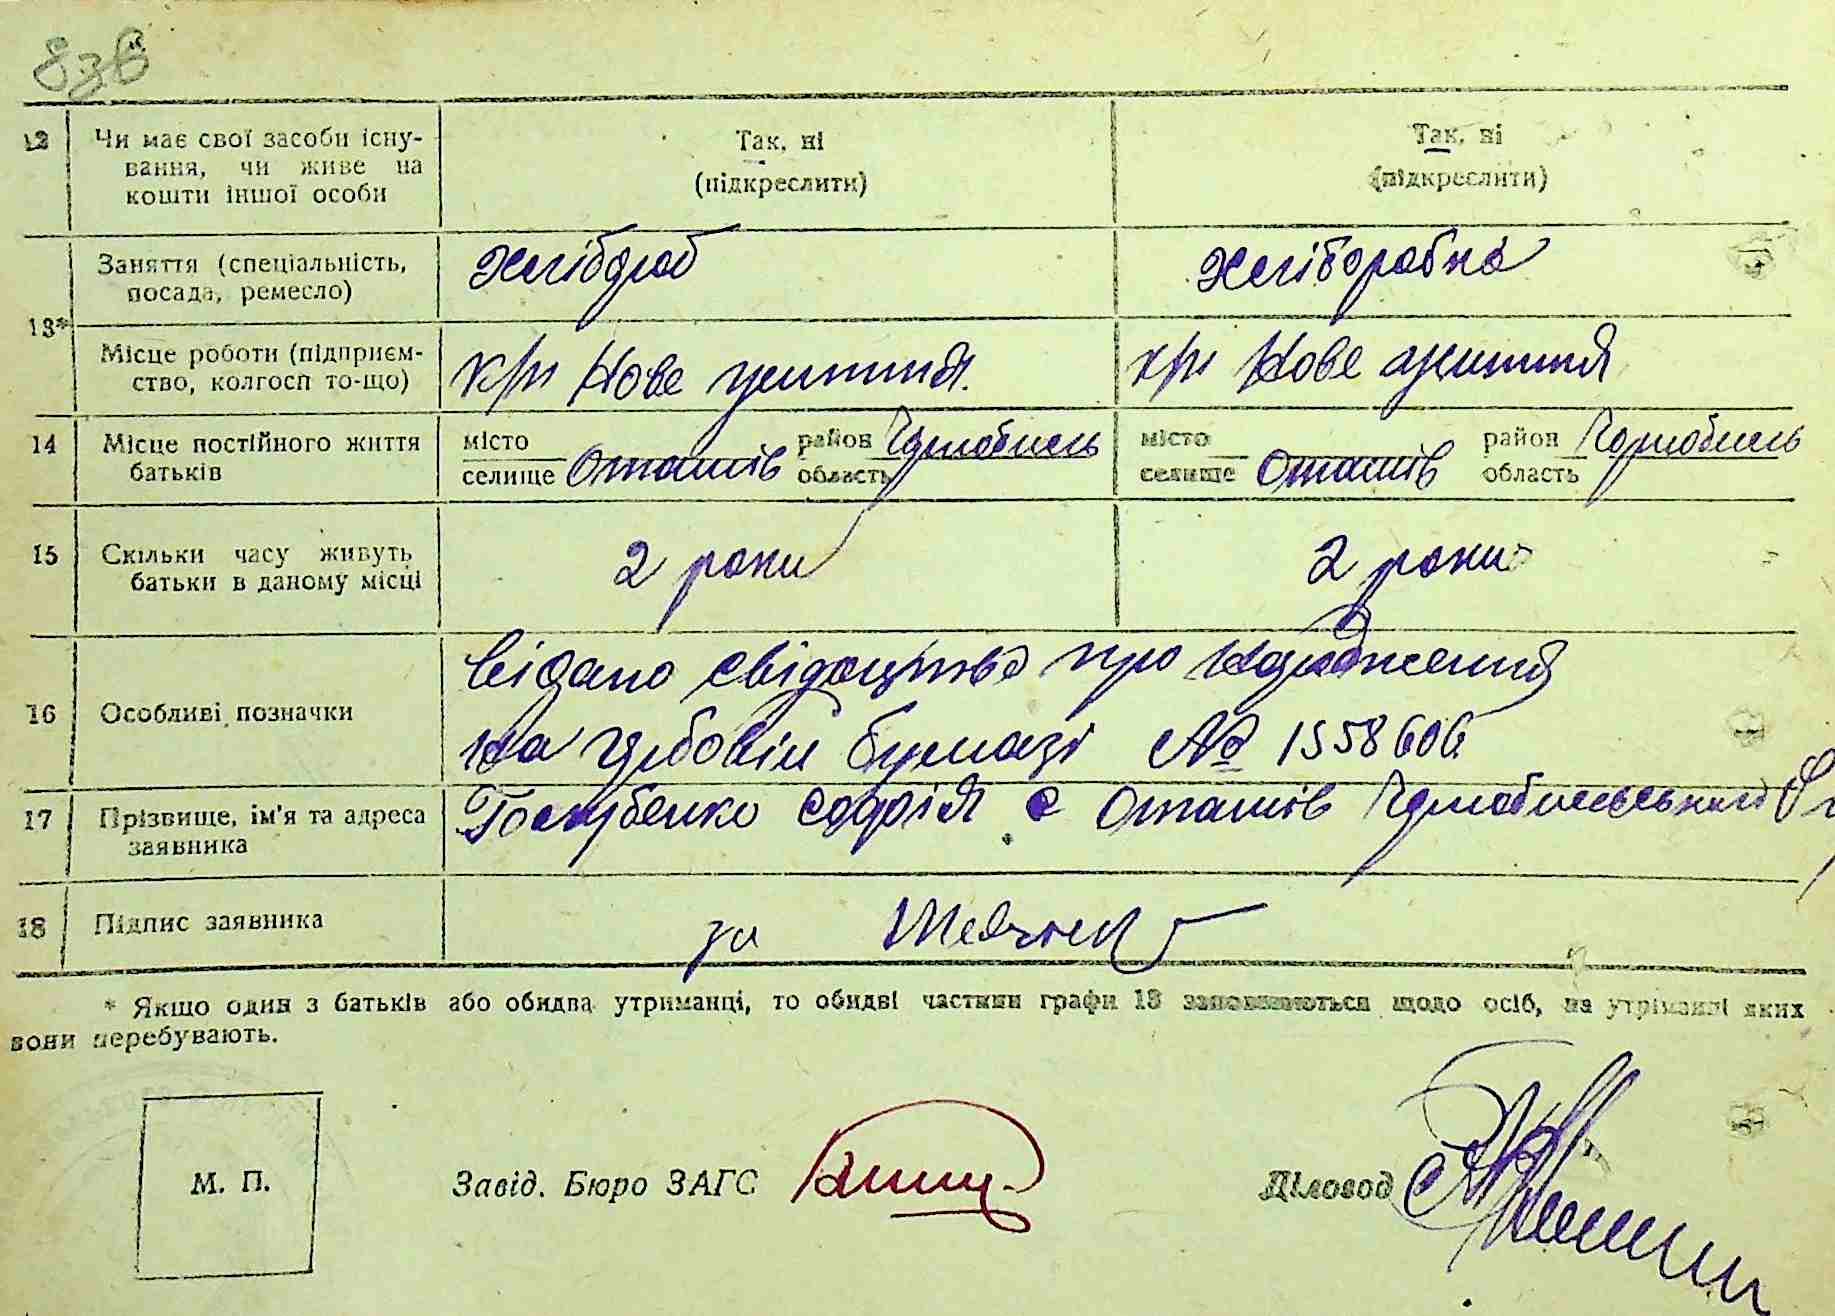 12 Чи має свої засоби існу- Так, ні Так, ні
вання, чи живе на (підкреслити) (підкреслити)
кошти іншої особи
Заняття (спеціальність, Хлібороб Хліборобка
посада, ремесло)
13*
Місце роботи (підприєм- к/г Нове життя. к/г Нове життя
ство, колгосп то-що)
14 Місце постійного життя місто район Чорнобиль місто район Чорнобиль
батьків селище Оташів область селище Оташів область
15 Скільки часу живуть 2 роки 2 роки
батьки в даному місці
видано свідоцтво про народження
16 Особливі позначки
на гербовій бумазі № 1558606
17 Прізвище, ім'я та адреса Голубенко Софія с Оташів Чорнобильський
заявника
18 Підпис заявника за
* Якщо один з батьків або обидва утриманці, то обидві частини графи 13 заповнюються щодо осіб, на утриманні яких
вони перебувають.
М. П. Завід. Бюро ЗАГС Діловод